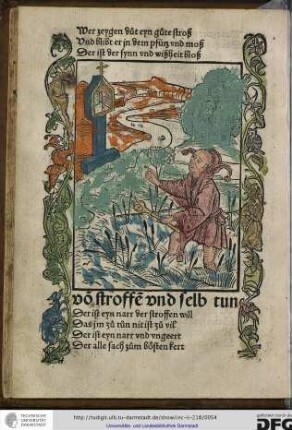 Wer zeygen důt eyn gůte stroß
Vnd blibt er jn dem pfůtz vnd moß
Der ist der synn vnd wißheit bloß
võ stroffẽ vnd selb tun
Der ist eyn narr der stroffen will
Das jm zů tůn nit ist zů vil
Der ist eyn narr vnd vngeert
Der alle sach zům bösten kert
TECHNISCHE UNIVERSITÄT DARMSTADT
http://tudigit.ulb.tu-darmstadt.de/show/inc-ii-218/0054
Universitäts- und Landesbibliothek Darmstadt
gefördert durch die
DFG